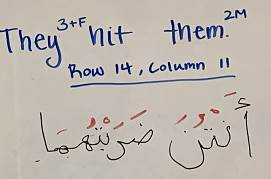 They 3+F hit them. 2M
Row 14, column 11
أنتن ضربتهما